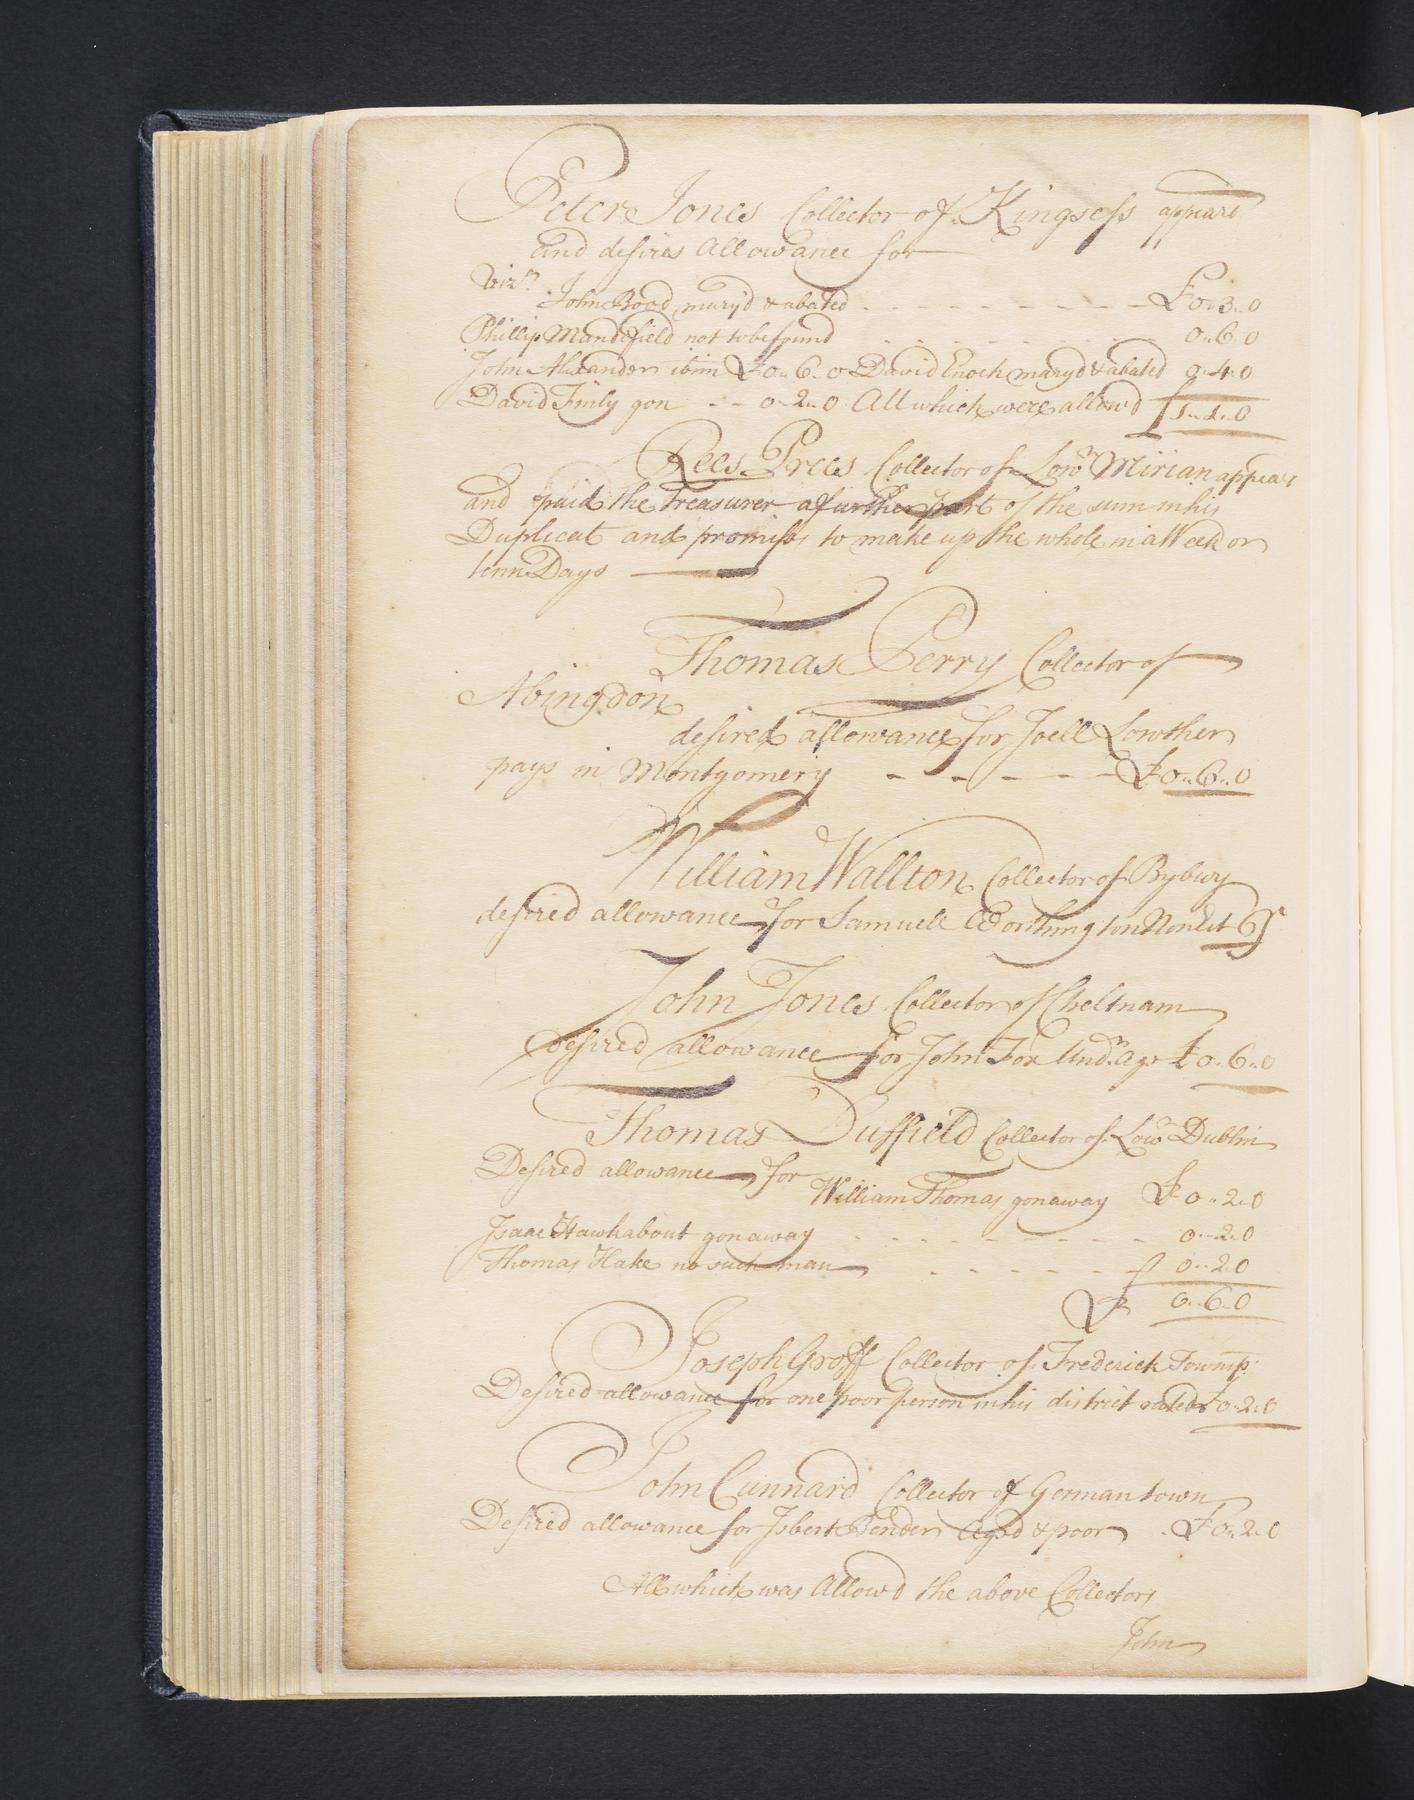 Peter Jones Collector of Kingsess appears
and desires Allowance for
Vizt. John Bood maryd & abated - - - £0..3..0
Phillip Mandefield not to be found - - - 0..6..0
John Alexander £0..6..0 David Enoch maryd & abated 0..4..0
David Finly gon - - 0..2..0 All which were allowd £1..1..0
Rees Prees Collector of Lowr Mirian appears
and paid the Treasurer a further part of the sum in his
Duplicat and promises to make up the whole in a Week or
tenn Days
Thomas Perry Collector of
Abingdon
desired allowance for Joell Lowther
pays in Montgomery - - - - £0..6..0
William Wallton Collector of Bybury
desired allowance for Samuell Worthington 6s
John Jones Collector of Cheltnam
Desired allowance for John Fox Undr. age £0..6..0
Thomas Duffield Collector of Lowr Dublin
Desired allowance for
William Thomas gon away £0..2..0
Isaac Hawkabout gon away - - - 0..2..0
Thomas Hake no such man - - - 0..2..0
£ 0..6..0
Joseph Groff Collector of Frederick Townsp:
Desired allowance for one poor person in his district rated £0..2..0
John Cunnard Collector of Germantown
Desired allowance for Isbert Benders Aged & poor - £0..2..0
All which was Allowd the above Collectors
John